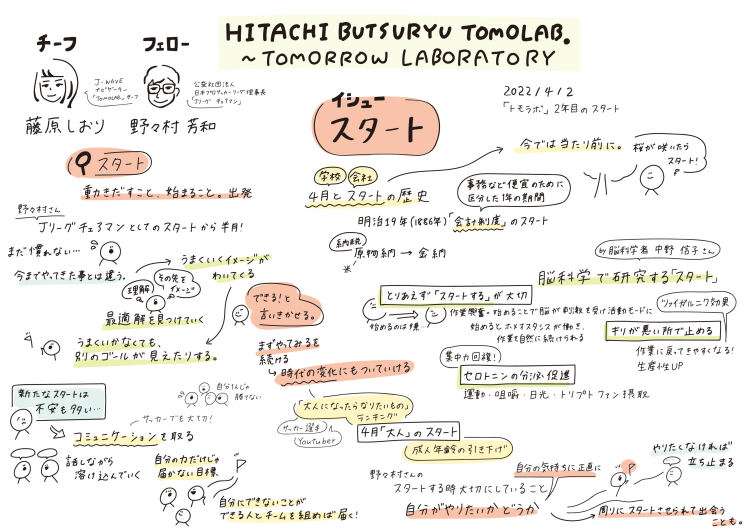 HITACHI BUTSURYU TOMOLAB.
~TOMORROW LABORATORY
チーフ
J-WAVE
ナビゲーター
「TOMOLAB.」チーフ
藤原しおり
フェロー
公益社団法人
日本プロサッカーリーグ理事長
「Jリーグ チェアマン」
野々村 芳和
イシュー
スタート
2022/4/2
「トモラボ」2年目のスタート
スタート
動きだすこと、始まること。出発
野々村さん
Jリーグチェアマンとしてのスタートから半月!
まだ慣れない…
今までやってきた事とは違う。
うまくいくイメージが
わいてくる
理解
その先を
イメージ
最適解を見つけていく
うまくいかなくても、
別のゴールが見えたりする。
できる!と
言いきかせる。
まずやってみるを
続ける
時代の変化にもついていける
新たなスタートは
不安も多い…
自分1人じゃ
勝てない
サッカーでも大切!
コミュニケーションを取る
話しながら
溶け込んでいく
自分の力だけじゃ
届かない目標
自分にできないことが
できる人とチームを組めば届く!
学校
会社
4月とスタートの歴史
今では当り前に。
桜が咲いたら
スタート!
事務など便宜のために
区分した1年の期間
明治19年(1886年)「会計制度」のスタート
納税
原物納→金納
by脳科学者 中野 信子さん
脳科学で研究する「スタート」
とりあえず「スタートする」が大切
作業興奮・始めることで脳が刺激を受け活動モードに
始めるのは嫌…
始めるとホメオスタシスが働き、
作業を自然に続けられる
ツァイガルニク効果
キリが悪い所で止める
作業に戻ってきやすくなる!
生産性UP
集中力回復!
セロトニンの分泌促進
運動・咀嚼・日光・トリプトファン摂取
「大人になったらなりたいもの」
ランキング
サッカー選手
Youtuber
4月「大人」のスタート
成人年齢の引き下げ
野々村さんの
スタートする時大切にしていること
自分の気持ちに正直に
自分がやりたいかどうか
やりたくなければ
立ち止まる
周りにスタートさせられて出会う
ことも。